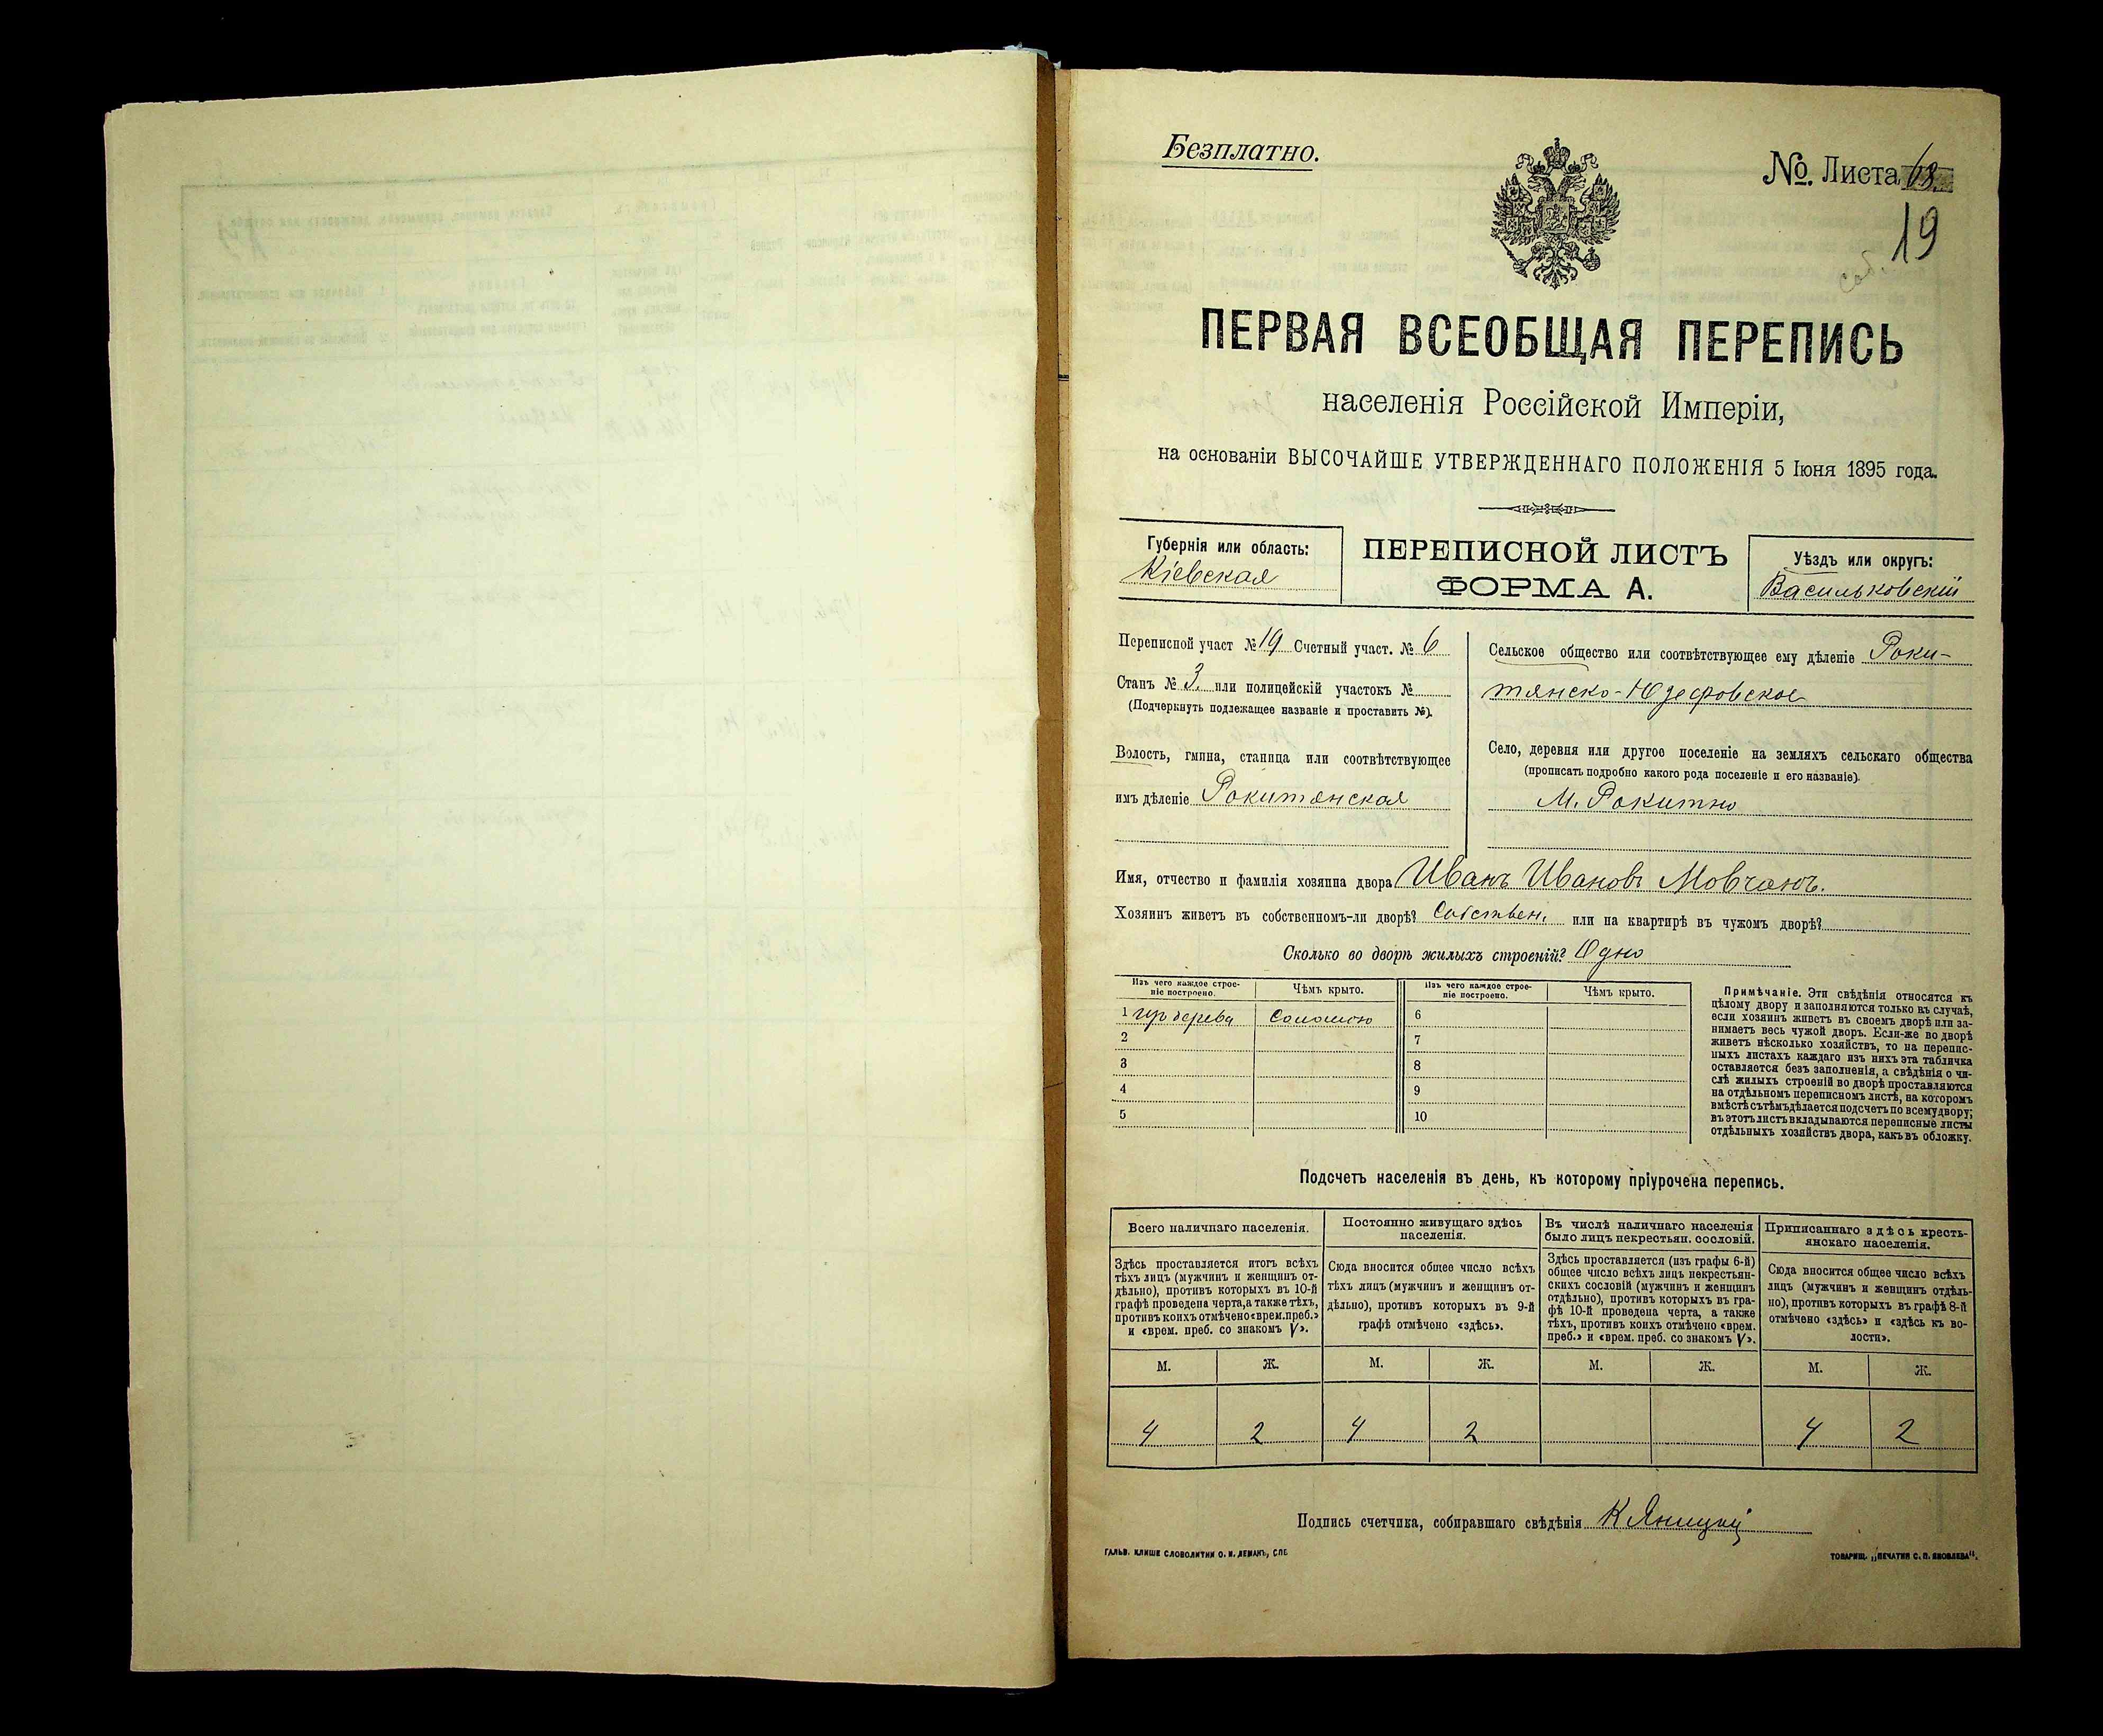 Безплатно.
№. Листа 68.
19
соб.
ПЕРВАЯ ВСЕОБЩАЯ ПЕРЕПИСЬ
населенія Россійской Имперіи,
на основаніи ВЫСОЧАЙШЕ УТВЕРЖДЕННАГО ПОЛОЖЕНІЯ 5 Іюня 1895 года.
Губернія или область:
Кіевская
ПЕРЕПИСНОЙ ЛИСТЪ
ФОРМА А.
Уѣздъ или округъ:
Васильковскій
Переписной участ № 19 Счетный участ. № 6
Станъ № 3. или полицейскій участокъ №
(Подчеркнуть подлежащее названіе и проставить №).
Волость, гмина, станица или соотвѣтствующее
имъ дѣленіе Рокитянская
Сельское общество или соотвѣтствующее ему дѣленіе Роки-
тянско-Юзефовское
Село, деревня или другое поселеніе на земляхъ сельскаго общества
(прописать подробно какого рода поселеніе и его названіе).
М. Рокитно
Имя, отчество и фамилія хозяина двора Иванъ Ивановъ Мовчанъ.
Хозяинъ живетъ въ собственномъ-ли дворѣ? Собствен. или на квартирѣ въ чужомъ дворѣ?
Сколько во дворѣ жилыхъ строеній? Одно
Изъ чего каждое строе-
ніе построено.
Чѣмъ крыто.
Изъ чего каждое строе-
ніе построено.
Чѣмъ крыто.
1 изъ дерева Соломою
2
3
4
5
6
7
8
9
10
Примѣчаніе. Эти свѣдѣнія относятся къ
цѣлому двору и заполняются только въ случаѣ,
если хозяинъ живетъ въ своемъ дворѣ или за-
нимаетъ весь чужой дворъ. Если-же во дворѣ
живетъ нѣсколько хозяйствъ, то на перепис-
ныхъ листахъ каждаго изъ нихъ эта табличка
оставляется безъ заполненія, а свѣдѣнія о чи-
слѣ жилыхъ строеній во дворѣ проставляются
на отдѣльномъ переписномъ листѣ, на которомъ
вмѣстѣ съ тѣмъ дѣлается подсчетъ по всему двору;
въ этотъ листъ вкладываются переписные листы
отдѣльныхъ хозяйствъ двора, какъ въ обложку.
Подсчетъ населенія въ день, къ которому пріурочена перепись.
Всего наличнаго населенія.
Здѣсь проставляется итогъ всѣхъ
тѣхъ лицъ (мужчинъ и женщинъ от-
дѣльно), противъ которыхъ въ 10-й
графѣ проведена черта, а также тѣхъ,
противъ коихъ отмѣчено «врем. преб.»
и «врем. преб. со знакомъ V».
Постоянно живущаго здѣсь
населенія.
Сюда вносится общее число всѣхъ
тѣхъ лицъ (мужчинъ и женщинъ от-
дѣльно), противъ которыхъ въ 9-й
графѣ отмѣчено «здѣсь».
Въ числѣ наличнаго населенія
было лицъ некрестьян. сословій.
Здѣсь проставляется (изъ графы 6-й)
общее число всѣхъ лицъ некрестьян-
скихъ сословій (мужчинъ и женщинъ
отдѣльно), противъ которыхъ въ гра-
фѣ 10-й проведена черта, а также
тѣхъ, противъ коихъ отмѣчено «врем.
преб.» и «врем. преб. со знакомъ V».
Приписаннаго здѣсь кресть-
янскаго населенія.
Сюда вносится общее число всѣхъ
лицъ (мужчинъ и женщинъ отдѣль-
но), противъ которыхъ въ графѣ 8-й
отмѣчено «здѣсь» и «здѣсь къ во-
лости».
М. Ж. М. Ж. М. Ж. М. Ж.
4 2 4 2 4 2
Подпись счетчика, собиравшаго свѣдѣнія К Яницкій
ГАЛЬВ. КЛИШЕ СЛОВОЛИТНИ О. И. ЛЕМАНЪ, СПБ.
ТОВАРИЩ. „ПЕЧАТНЯ С. П. ЯКОВЛЕВА“.